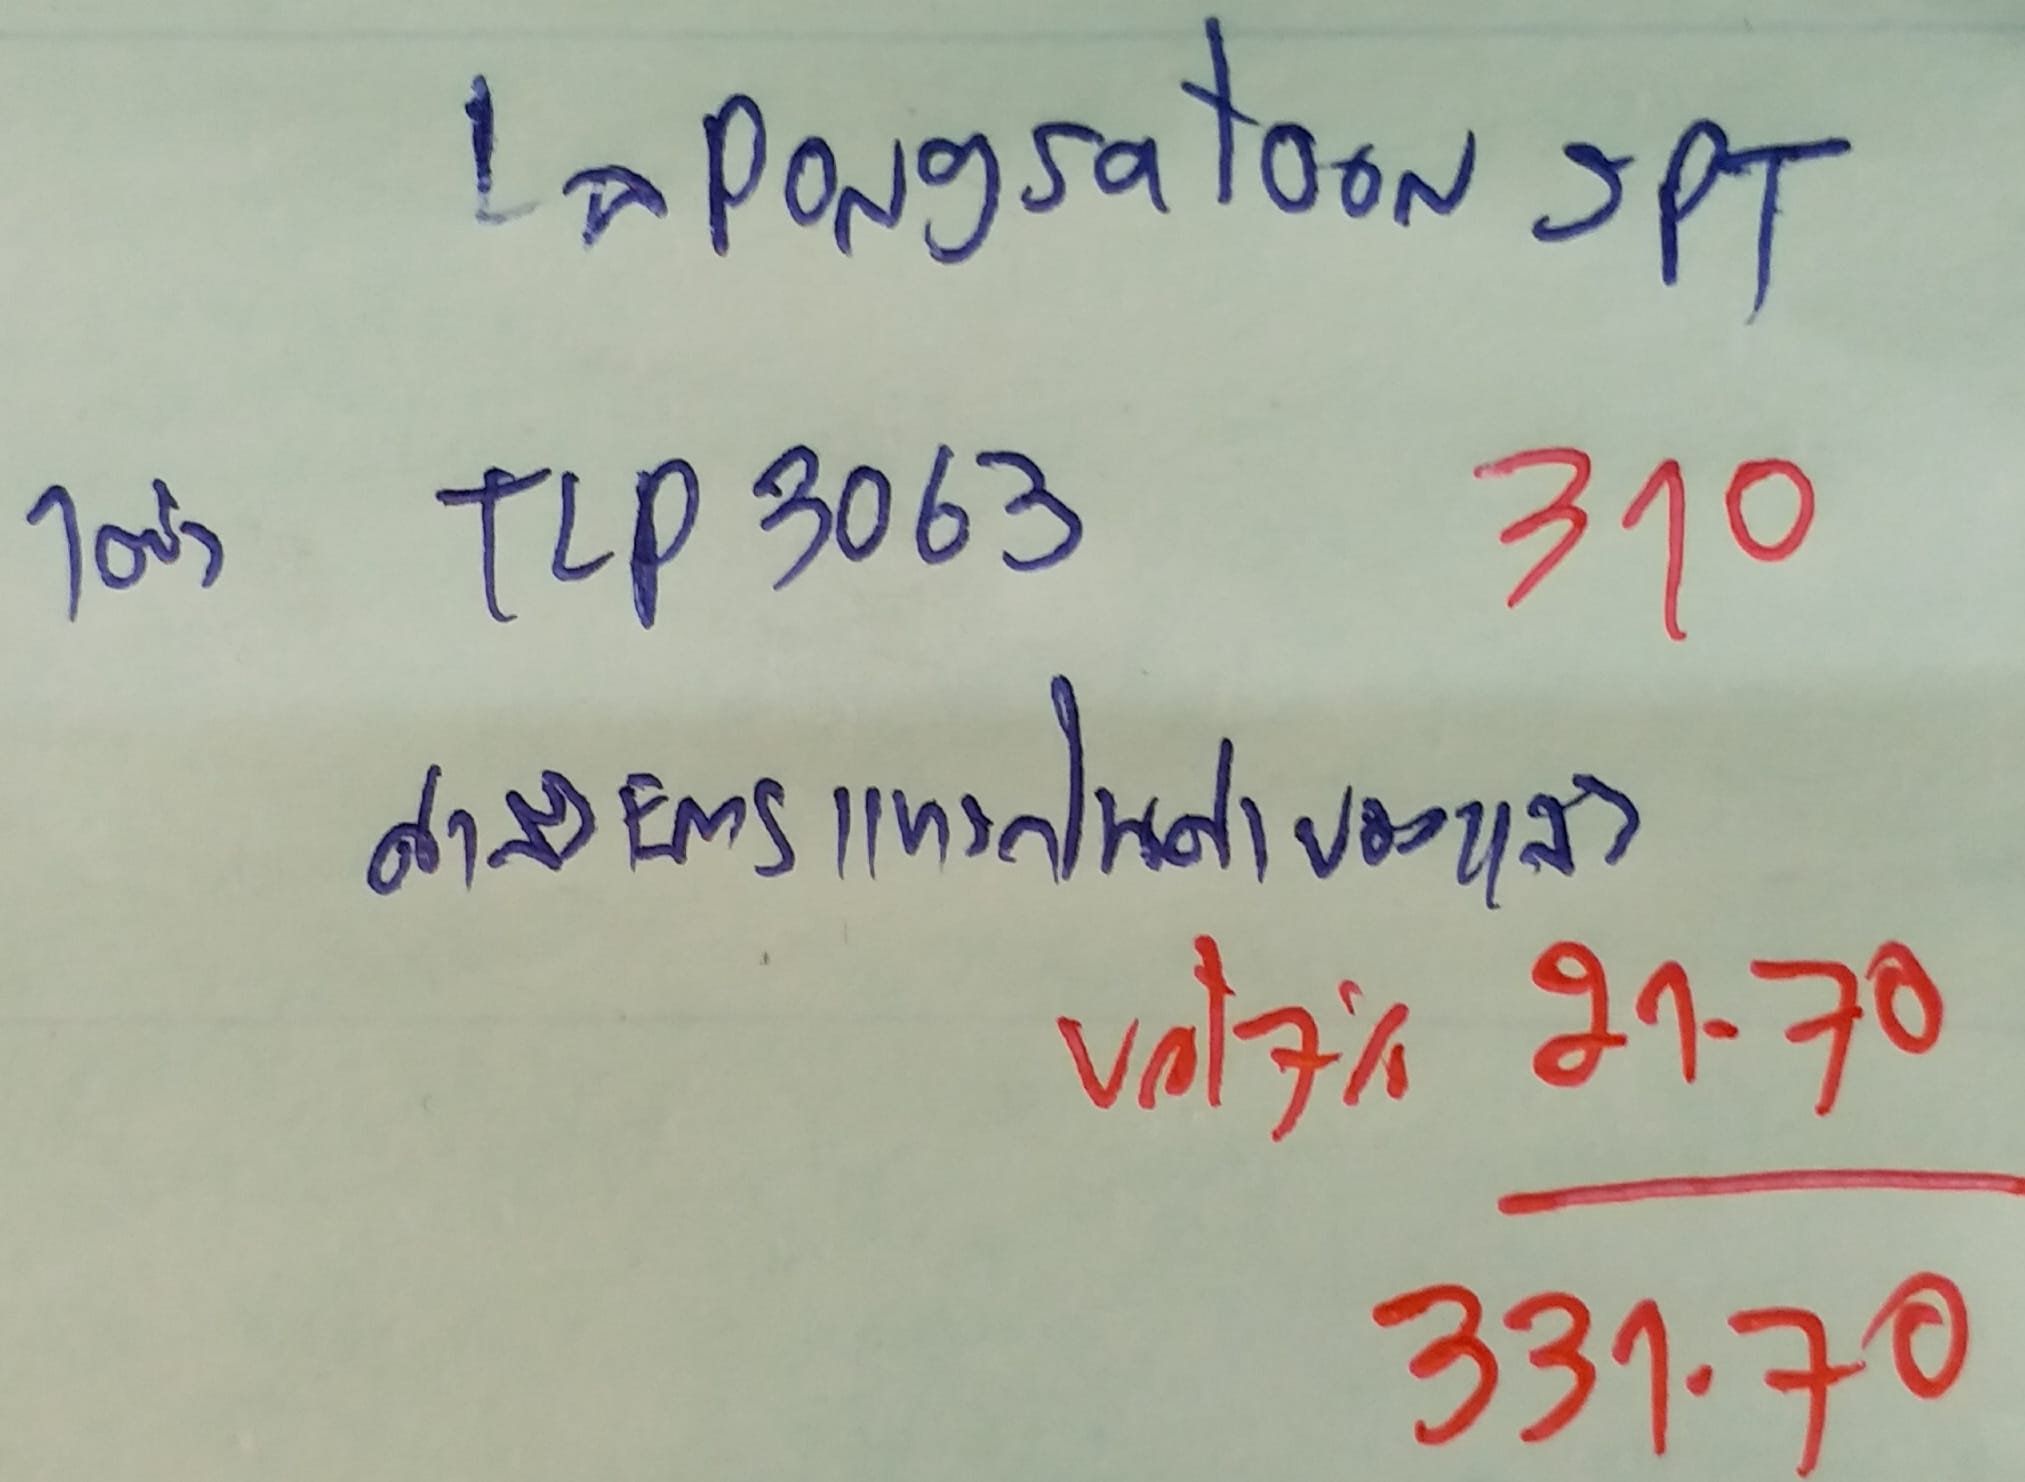 Pongsatoon SPT
10ตัว TLP 3063 310
ค่าส่ง EMS แทรกในค่าของแล้ว
vat 7% 21.70
331.70